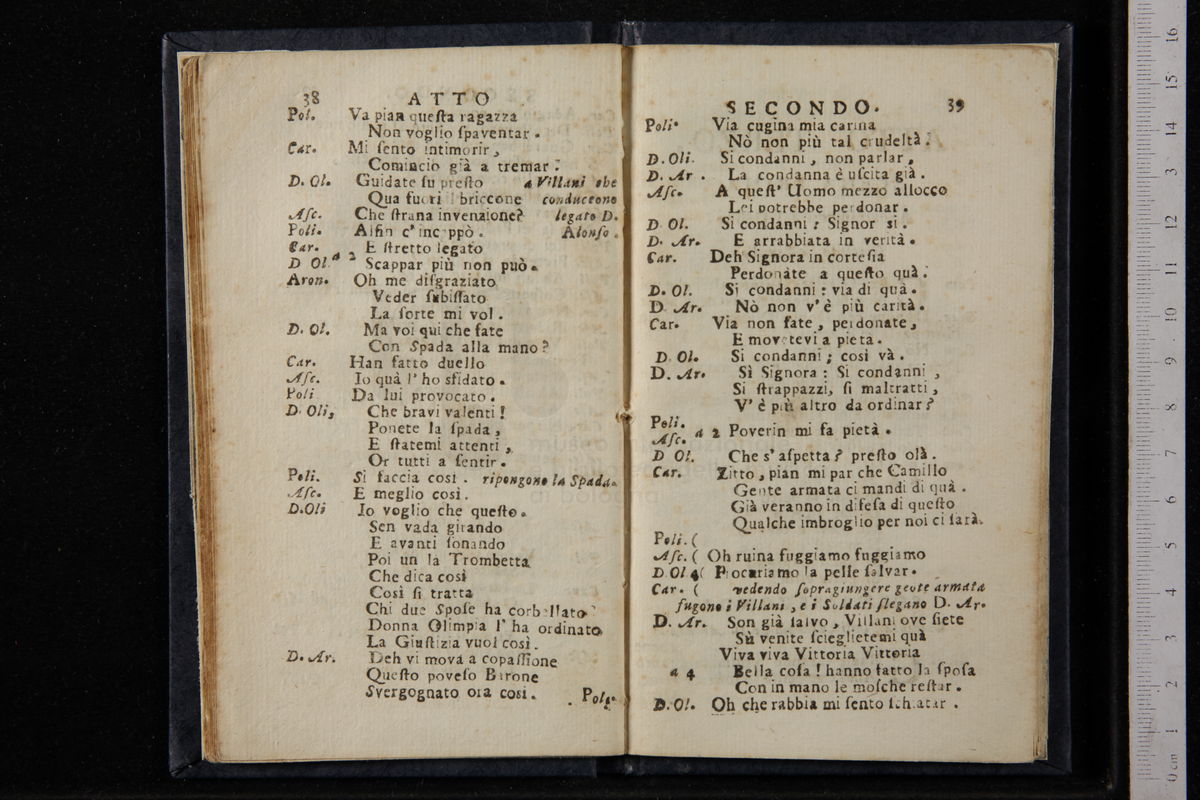 38 ATTO
Pol. Va pian queſta ragazza
Non voglio ſpaventar.
Car. Mi ſento intimorir,
Comincio già a tremar.
D. Ol. Guidate ſu preſto a Villani che
Qua fuori briccone conducono
Aſc. Che ſtrana invenzione? legato D.
Poli. Alfin c' inceppò. Alonſo.
Car. E ſtretto legato
D Ol. a 2 Scappar più non può.
Aron. Oh me diſgraziato
Veder ſubiſſato
La ſorte mi vol.
D. Ol. Ma voi qui che fate
Con Spada alla mano?
Car. Han fatto duello
Aſc. Io quà l' ho sfidato.
Poli Da lui provocato.
D. Oli, Che bravi valenti!
Ponete la ſpada,
E ſtatemi attenti,
Or tutti a ſentir.
Poli. Si faccia così. ripongono la Spada.
Aſc. E meglio così.
D.Oli Io voglio che queſto.
Sen vada girando
E avanti ſonando
Poi un la Trombetta
Che dica così
Così ſi tratta
Chi due Spoſe ha corbellato
Donna Olimpia l' ha ordinato
La Giuſtizia vuol così.
D. Ar. Deh vi mova a copaſſione
Queſto poveſo Barone
Svergognato ora così.
Pol.
SECONDO. 39
Poli. Via cugina mia carina
Nò non più tal crudeltà.
D. Oli. Si condanni, non parlar,
D. Ar. La condanna è uſcita già.
Aſc. A queſt' Uomo mezzo allocco
Lei potrebbe perdonar.
D Ol. Si condanni: Signor sì.
D. Ar. E arrabbiata in verità.
Car. Deh Signora in corteſia
Perdonate a queſto quà.
D. Ol. Si condanni: via di quà.
D. Ar. Nò non v' è più carità.
Car. Via non fate, perdonate,
E movetevi a pieta.
D. Ol. Si condanni; così và.
D. Ar. Sì Signora: Si condanni,
Si ſtrappazzi, ſi maltratti,
V' è più altro da ordinar?
Poli.
Aſc. a 2 Poverin mi fa pietà.
D Ol. Che s' aſpetta? preſto olà.
Car. Zitto, pian mi par che Camillo
Gente armata ci mandi di quà.
Già veranno in difeſa di queſto
Qualche imbroglio per noi ci ſarà.
Poli. (
Aſc. ( Oh ruina fuggiamo fuggiamo
D. Ol 4( Procuriamo la pelle ſalvar.
Car. ( vedendo ſopragiungere gente armata
fugono i Villani, e i Soldati ſlegano D. Ar.
D. Ar. Son già ſalvo, Villani ove ſiete
Sù venite ſcieglietemi quà
Viva viva Vittoria Vittoria
a 4 Bella coſa! hanno fatto la ſpoſa
Con in mano le moſche reſtar.
D. Ol. Oh che rabbia mi ſento ſchiatar.
0 cm 1 2 3 4 5 6 7 8 9 10 11 12 13 14 15 16